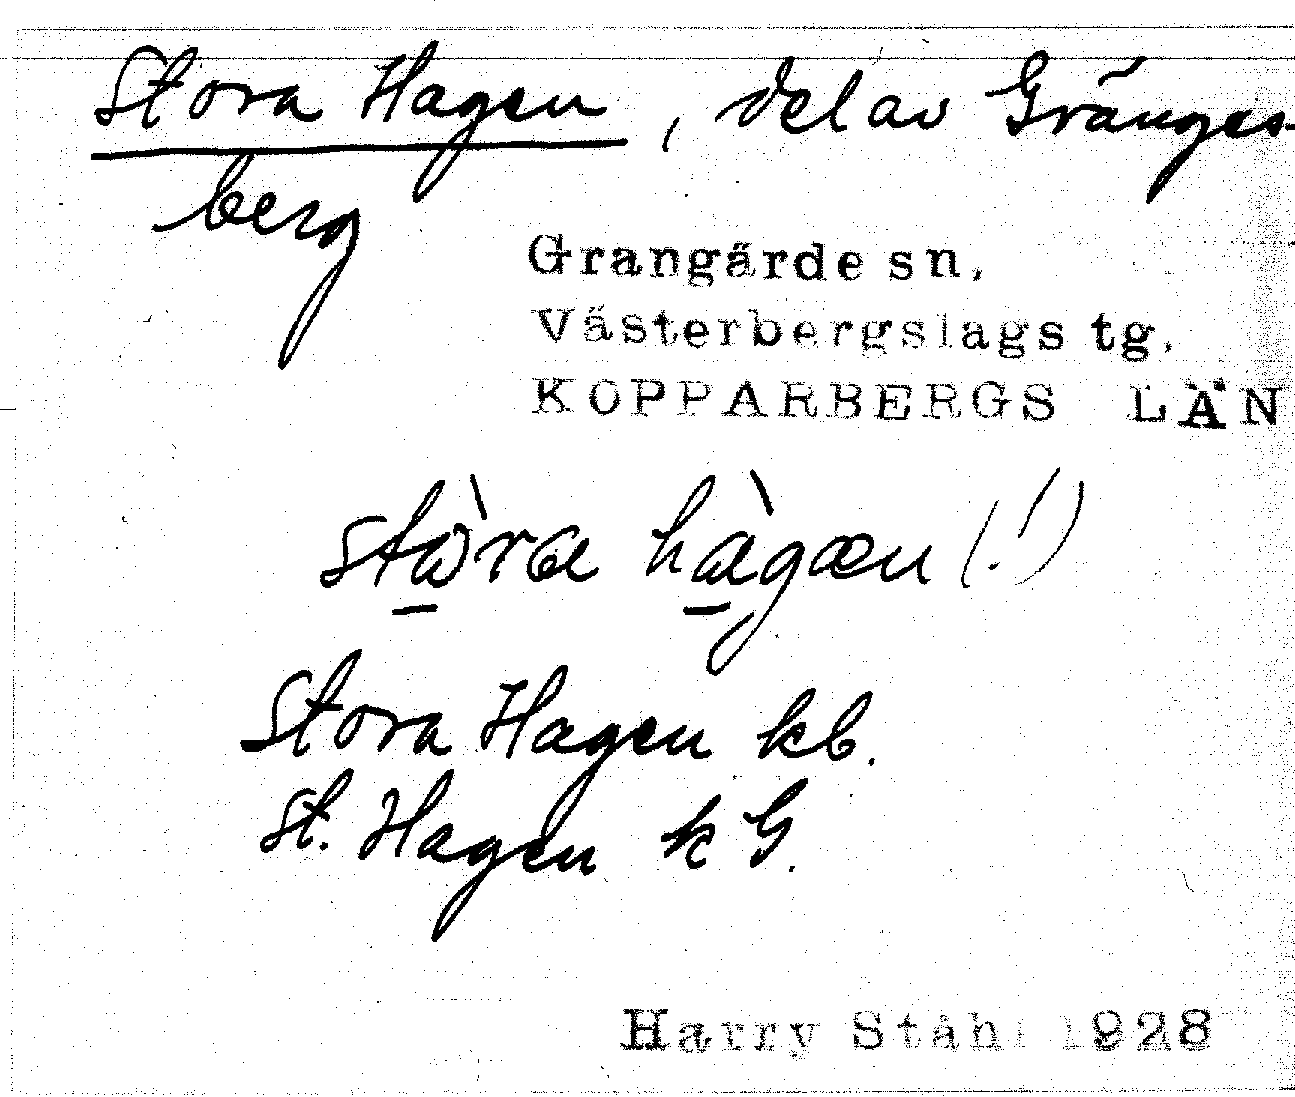 Stora Hagen, del av Gränges-
berg
Grangärde sn.
Västerbergslags tg.
KOPPARBERGS LÄN
stὼra hàgæn (!)
Stora Hagen kb.
St. Hagen k G.
Harry Ståhl 1928